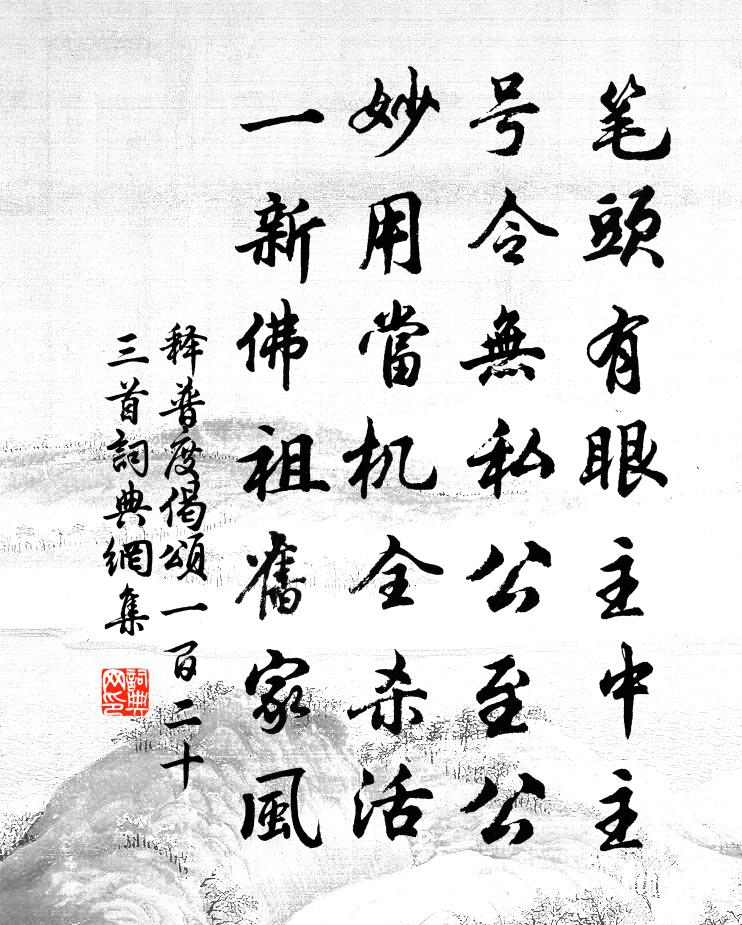 笔頭有眼主中主
号令無私公至公
妙用當机全杀活
一新佛祖舊家風
释普度偈頌一百二十
三首詞典網集
詞典
网印